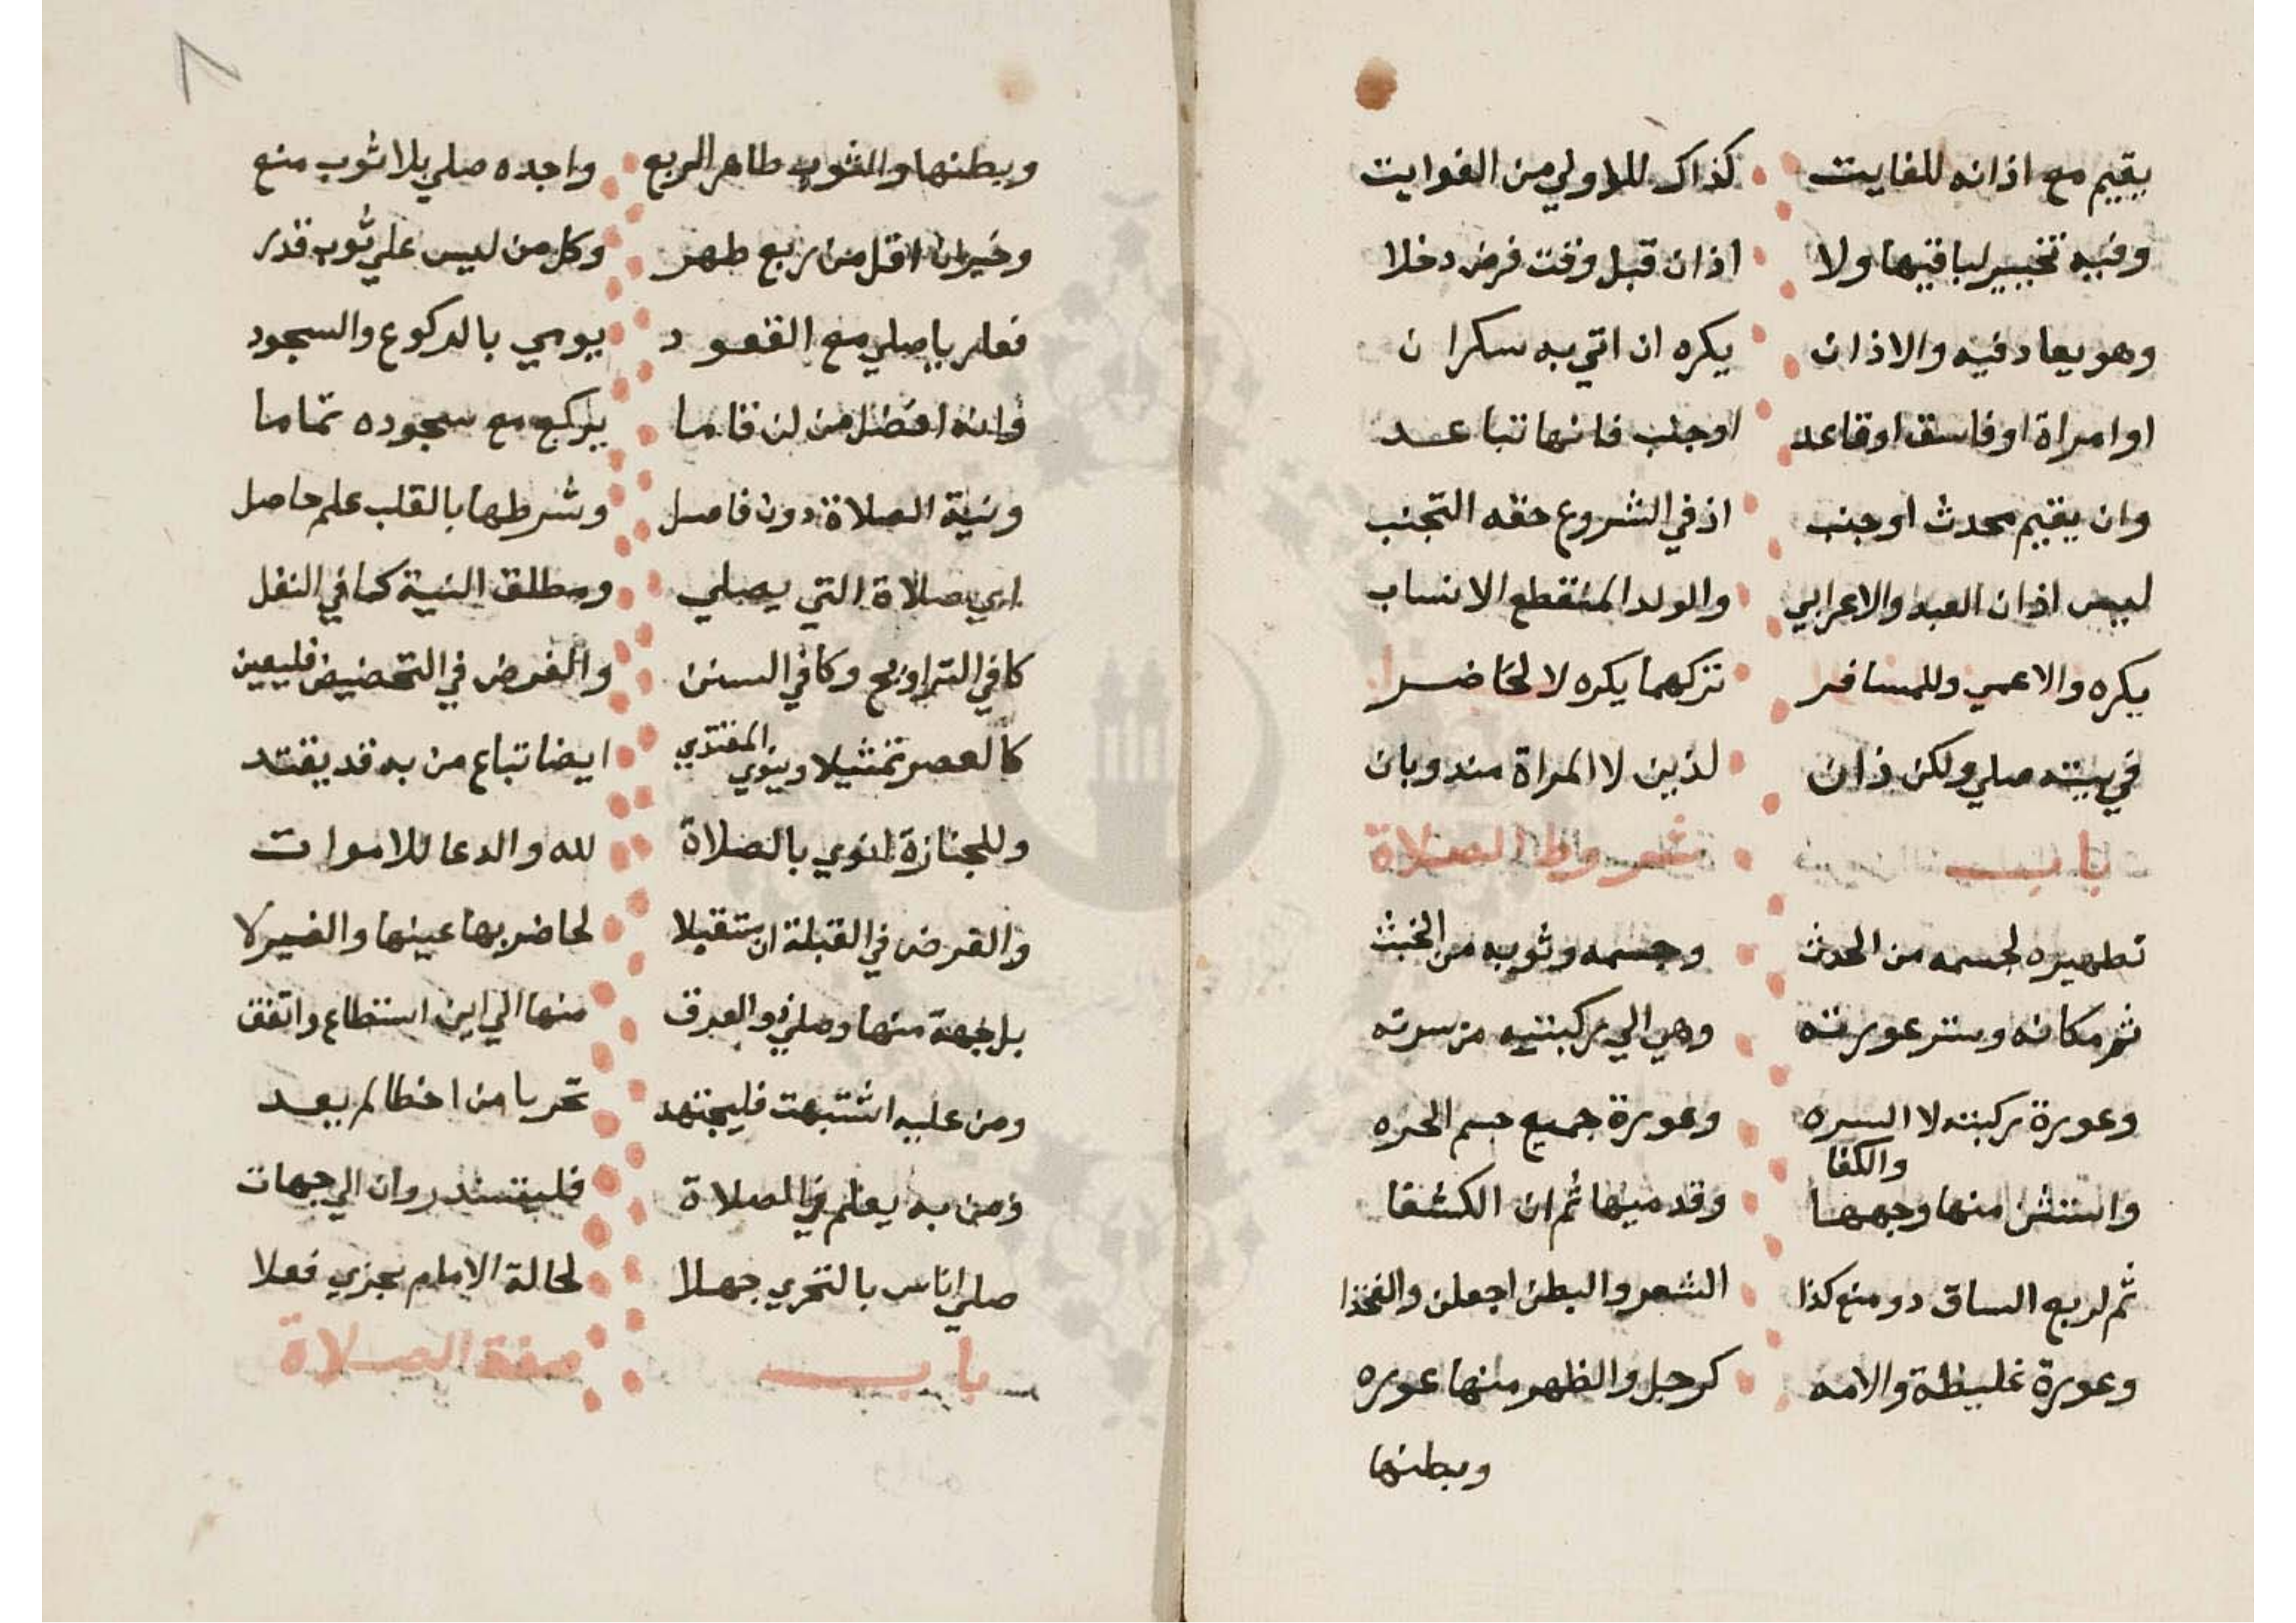 يقيم مع اذانه للفايت كذاك للاولي من الفوايت
وفيه تخيير لباقيها ولا اذان قبل وقت فرض دخلا
وهو يعاد فيه والاذان يكره ان اتي به سكران
او امراة او فاسق او قاعد او جنب فانها تباعد
وان يقيم محدث او جنب اذ في الشروع حقه التجنب
ليس اذان العبد والاعرابي والولد المنقطع الانساب
يكره والاعمي وللمسافر تركهما يكره لا لحاضر
في بيته صلي ولكن ذان لذين لا المراة مندوبان
باب شروط الصلاة
تطهيره لجسمه من الحدث وجسمه وثوبه من الخبث
ثم مكانه وستر عورته وهي الي ركبتيه من سرته
وعورة ركبته لا السره وعورة جميع جسم الحره
واستثن منها وجهها والكفا وقدميها ثم ان الكشفا
ثم لربع الساق دو منع كذا الشعر والبطن اجعلن والفخذا
وعورة غليظة والامه كرجل والظهر منها عوره
وبطنها
٨
وبطنها والثوب طاهر الربع واجده صلي بلا ثوب منع
وخيرن اقل من ربع طهر وكل من ليس علي ثوب قدر
فعاريا صلي مع القعود يومي بالركوع والسجود
وانه افضل من لن قاما يركع مع سجوده تماما
ونية الصلاة دون فاصل وشرطها بالقلب علم حاصل
اي صلاة التي يصلي ومطلق النية كما في النفل
كافي التراويح وكافي السنن والفرض في التحضيض فليعين
كالعصر تمثيلا وينوي المقتدي ايضا تباع من به قد يقتد
وللجنازة انوي بالصلاة لله والدعا للاموات
والفرض في القبلة ان ستقبلا لحاضر بها عينها والغير لا
بل جهة منها وصلي ذو العرق منها الي اين استطاع واتفق
ومن عليه اشتبهت فليجتهد تحريا من اخطا لم يعد
ومن به يعلم في الصلاة فليستدر وان الي جهات
صلي اناس بالتحري جهلا لحالة الامام يجزي فعلا
باب صفة الصلاة